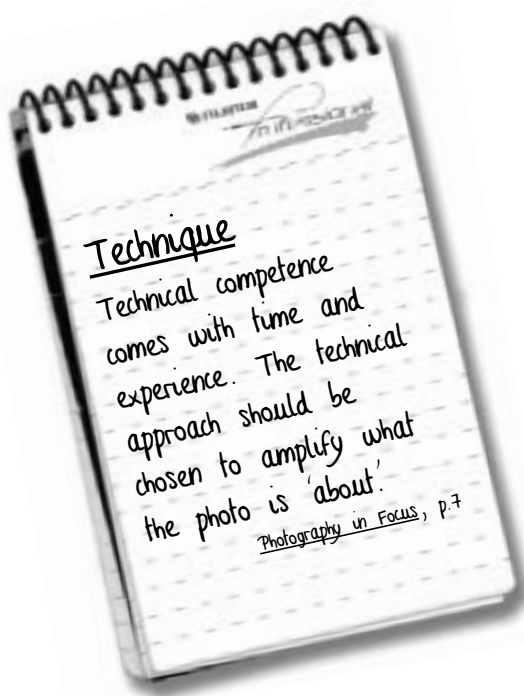 FUJIFILM
Professional
Technique
Technical competence
comes with time and
experience. The technical
approach should be
chosen to amplify what
the photo is 'about'.
Photography in Focus, p.7